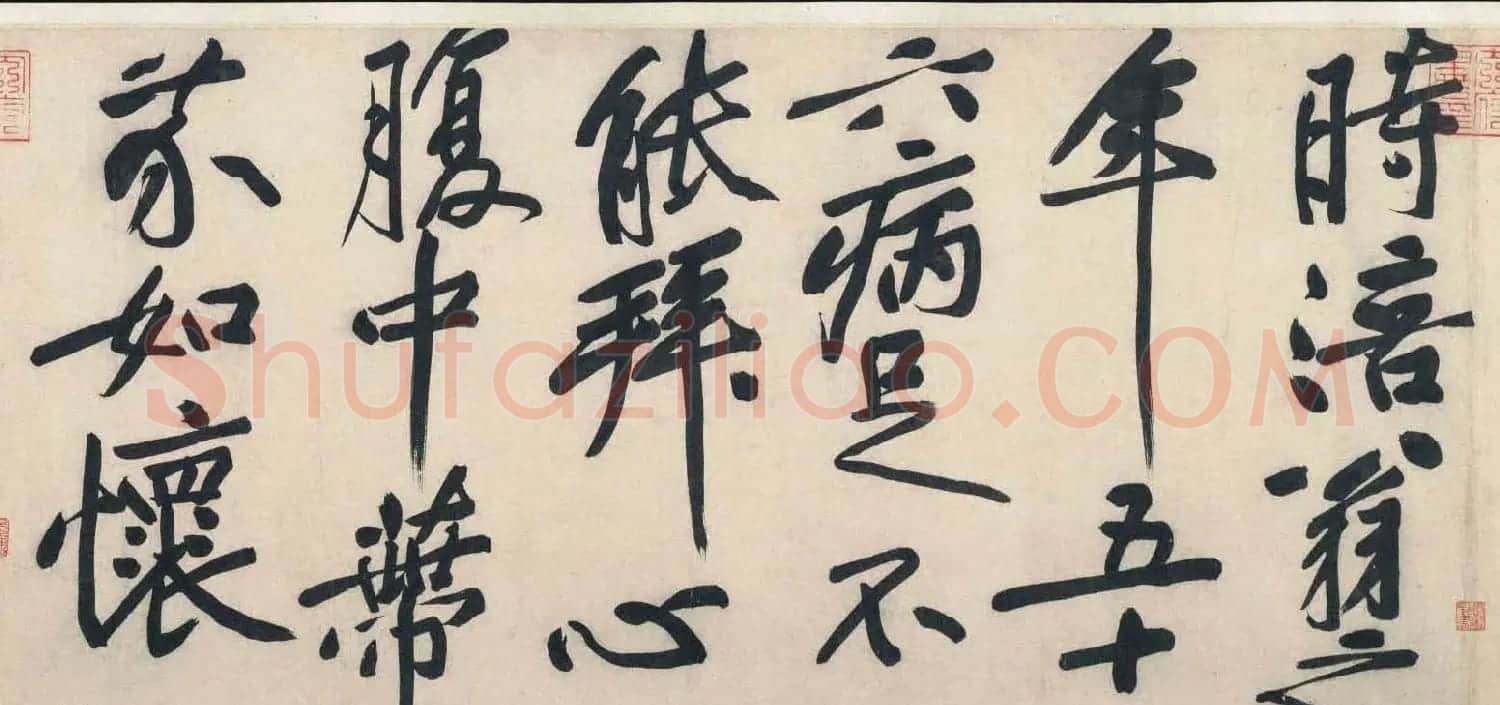 時涪翁之
年五十
六病足不
能拜心
腹中蔕
芥如懷
Shufaziliao.COM